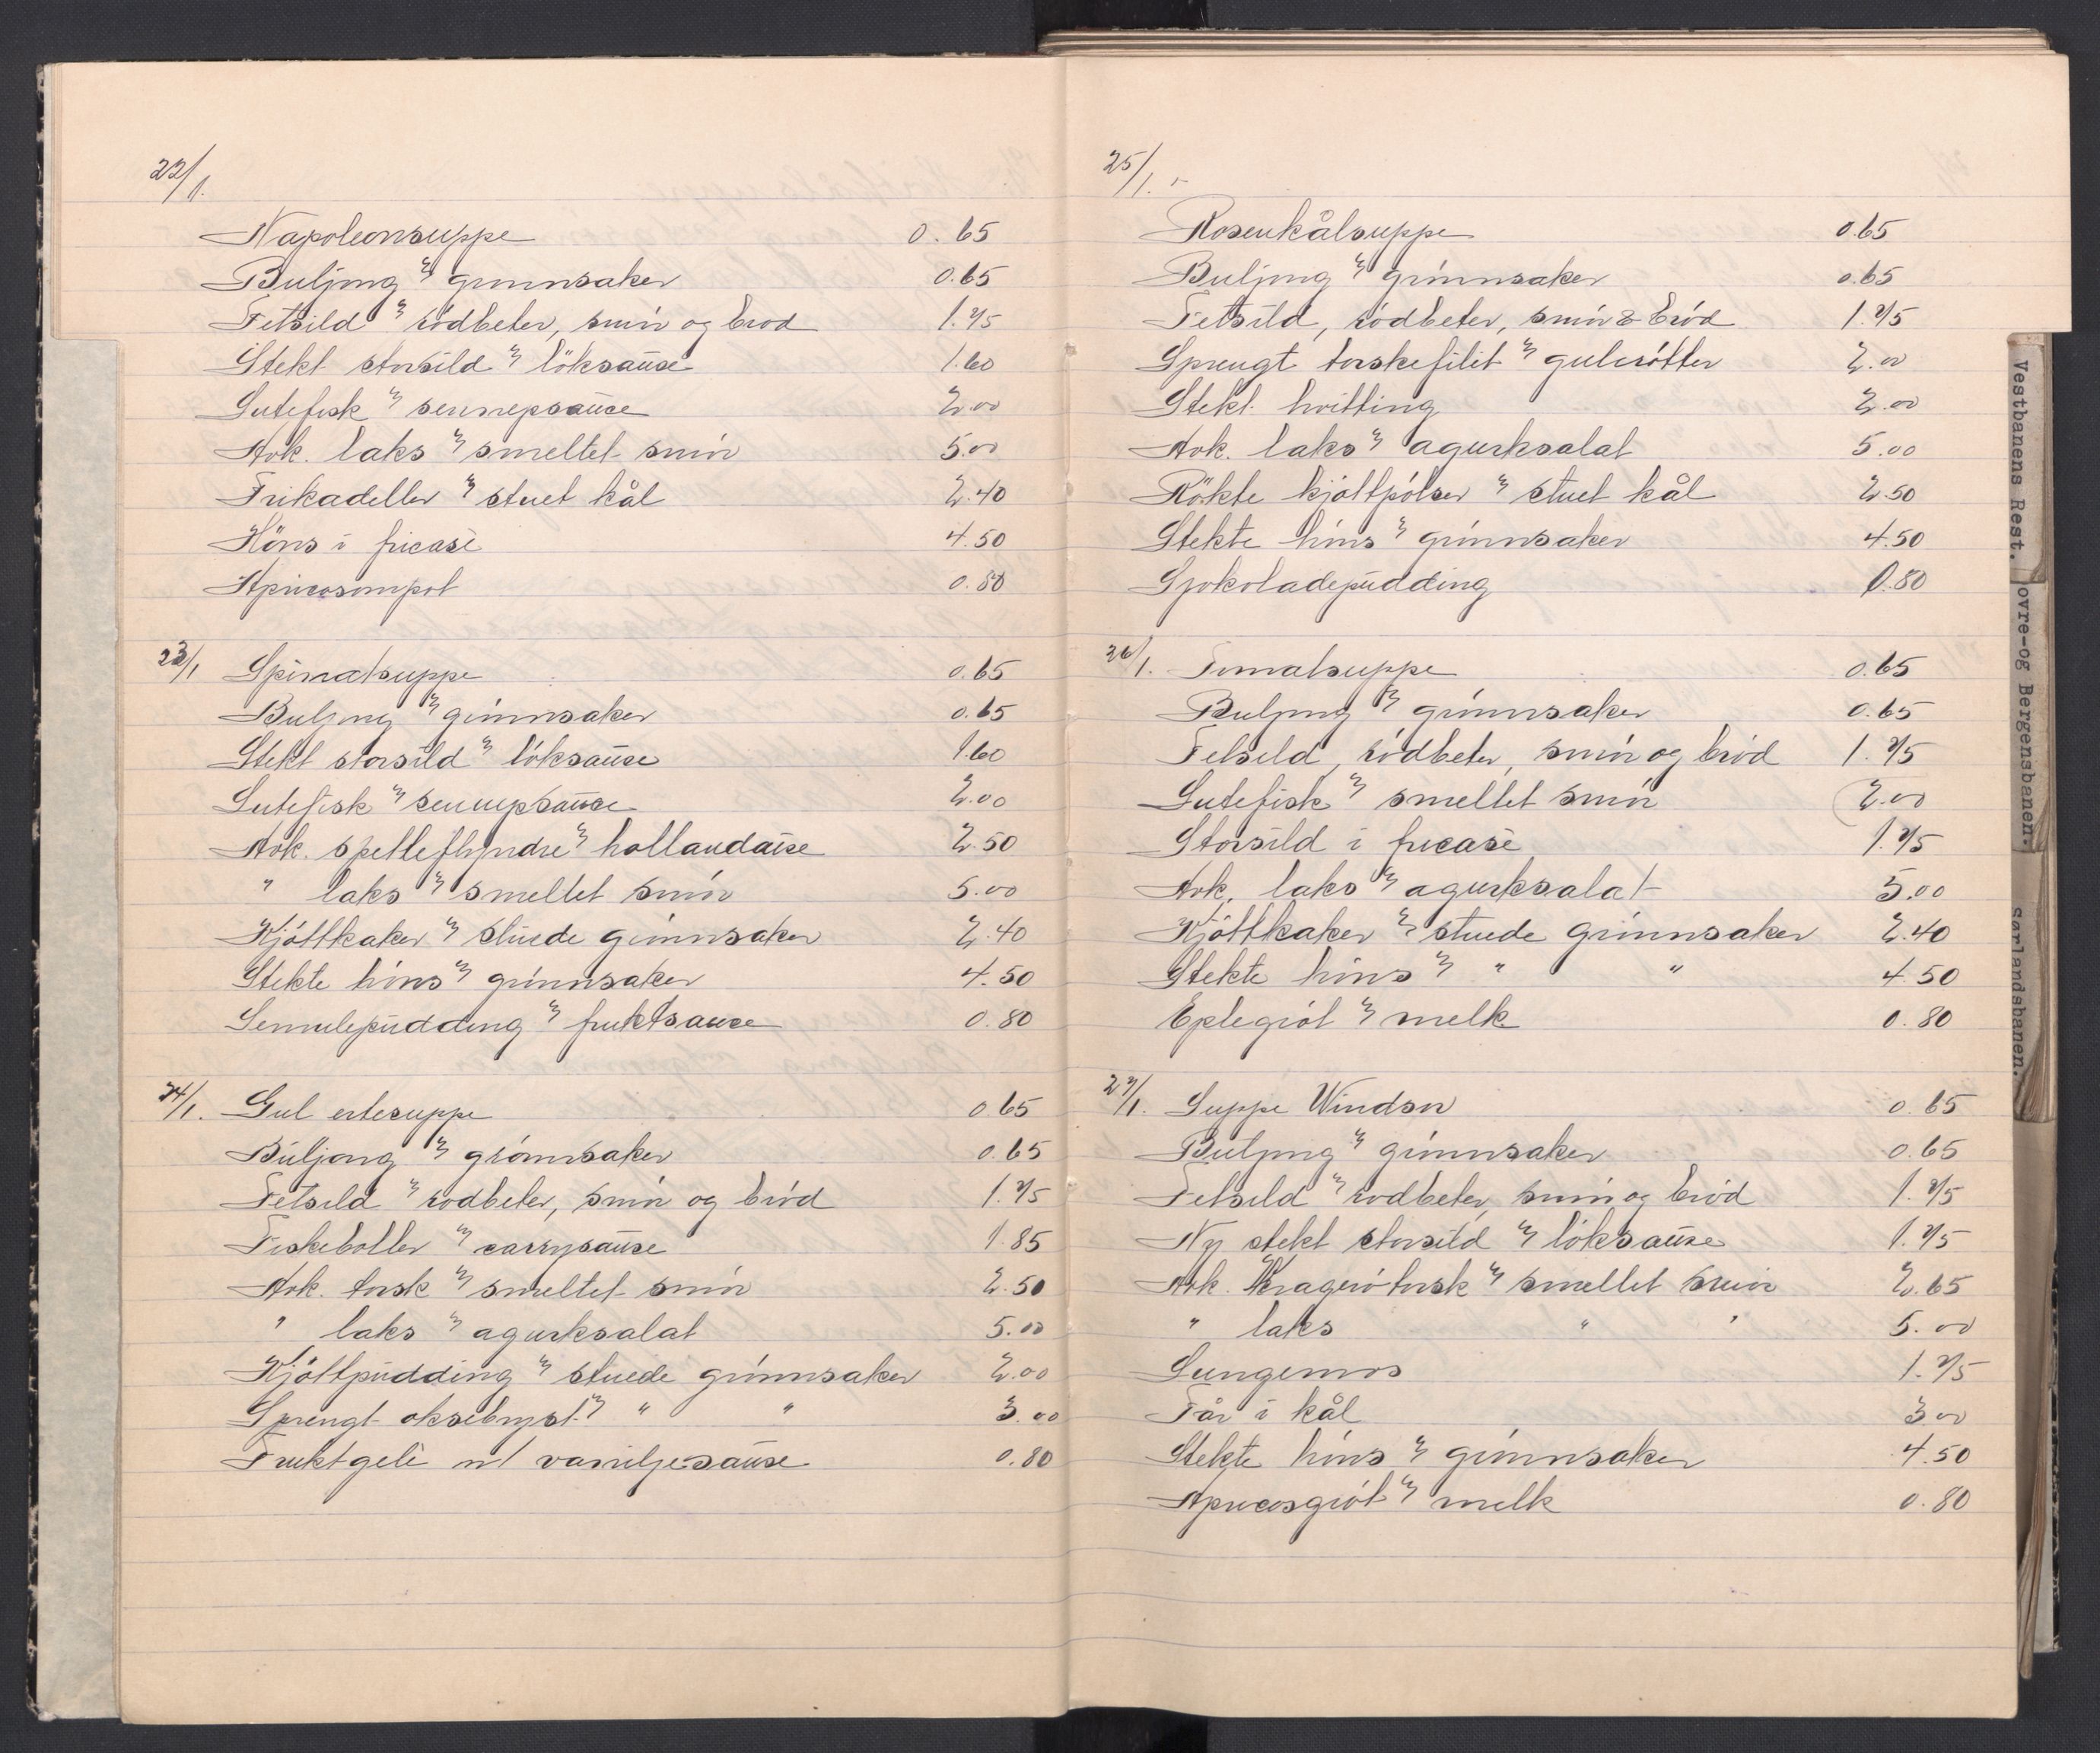 22/1.
Napoleonsuppe 0.65
Buljong m/ grønnsaker 0.65
Fetsild m/ rødbeter, smör og bröd 1.75
Stekt storsild m/ löksause 1.60
Lutefisk m/ sennepsause 2.00
Avk. laks m/ smeltet smör 5.00
Frikadeller m/ stuet kål 2.40
Höns i fricasè 4.50
Apricosompot 0.80
23/1 Spinatsuppe 0.65
Buljong m/ grönnsaker 0.65
Stekt storsild m/ löksause 1.60
Lutefisk m/ sennepsause 2.00
Avk. spetteflyndre m/ hollandaise 2.50
" laks m/ smeltet smör 5.00
Kjöttkaker m/ stuede grönnsaker 2.40
Stekte höns m/ grönnsaker 4.50
Semulepudding m/ fruktsause 0.80
24/1. Gul ertesuppe 0.65
Buljong m/ grönnsaker 0.65
Fetsild m/ rødbeter, smör og bröd 1.75
Fiskeboller m/ carrysause 1.85
Avk. torsk m/ smeltet smör 2.50
" laks m/ agurksalat 5.00
Kjöttpudding m/ stuede grönnsaker 2.00
Sprengt oksebryst m/ " " 3.00
Fruktgelè m/ vaniljesause 0.80
25/1.
Rosenkålsuppe 0.65
Buljong m/ grönnsaker 0.65
Fetsild, rödbeter, smör & bröd 1.75
Sprengt torskefilet m/ gulerötter 2.00
Stekt hvitting 2.00
Avk. laks m/ agurksalat 5.00
Rökte kjöttpölser m/ stuet kål 2.50
Stekte höns m/ grönnsaker 4.50
Sjokoladepudding 0.80
26/1. Tomatsuppe 0.65
Buljong m/ grönnsaker 0.65
Fetsild, rödbeter, smör og bröd 1.75
Lutefisk m/ smeltet smör 2.00
Storsild i fricasè 1.75
Avk. laks m/ agurksalat 5.00
Kjöttkaker m/ stuede grönnsaker 2.40
Stekte höns m/ " " 4.50
Eplegröt m/ melk 0.80
27/1. Suppe Windsor 0.65
Buljong m/ grönnsaker 0.65
Fetsild m/ rødbeter, smör og bröd 1.75
Ny stekt storsild m/ löksause 1.75
Avk. Kragerötorsk m/ smeltet smör 2.65
" laks " " 5.00
Lungemos 1.75
Får i kål 3.00
Stekte höns m/ grönnsaker 4.50
Apricosgröt m/ melk 0.80
Vestbanens Rest.
ovre-og Bergensbanen.
sørlandsbanen.